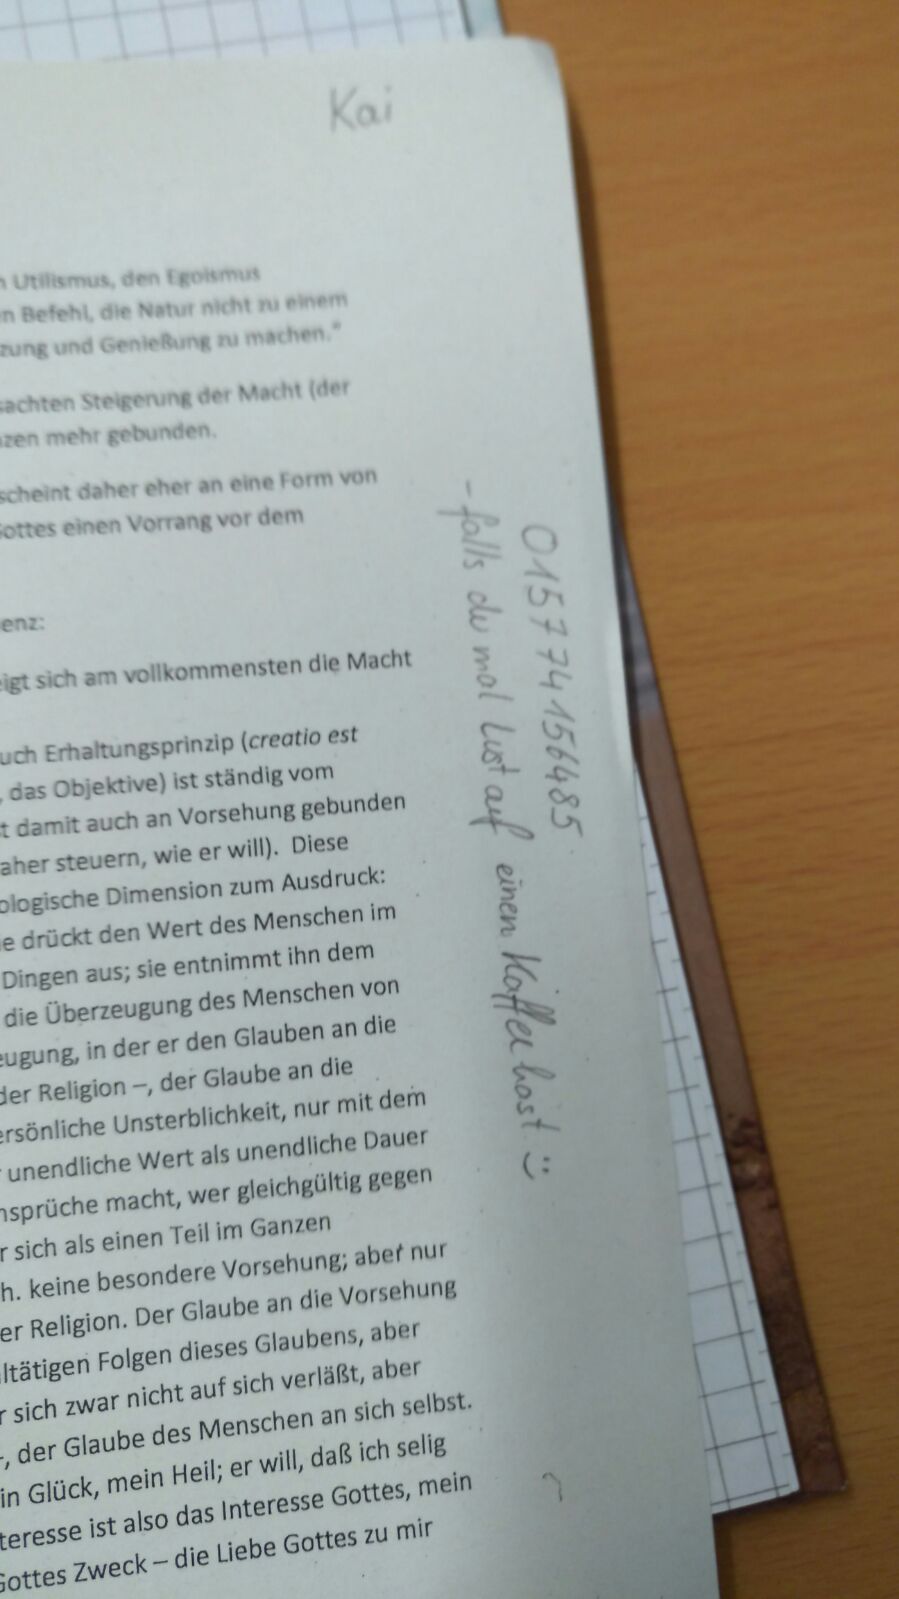 Kai
Utilismus, den Egoismus
Befehl, die Natur nicht zu einem
zung und Genießung zu machen."
sachten Steigerung der Macht (der
nzen mehr gebunden.
scheint daher eher an eine Form von
Gottes einen Vorrang vor dem
enz:
eigt sich am vollkommensten die Macht
uch Erhaltungsprinzip (creatio est
, das Objektive) ist ständig vom
t damit auch an Vorsehung gebunden
aher steuern, wie er will). Diese
ologische Dimension zum Ausdruck:
ie drückt den Wert des Menschen im
Dingen aus; sie entnimmt ihn dem
die Überzeugung des Menschen von
eugung, in der er den Glauben an die
der Religion –, der Glaube an die
ersönliche Unsterblichkeit, nur mit dem
unendliche Wert als unendliche Dauer
nsprüche macht, wer gleichgültig gegen
r sich als einen Teil im Ganzen
h. keine besondere Vorsehung; aber nur
er Religion. Der Glaube an die Vorsehung
ltätigen Folgen dieses Glaubens, aber
r sich zwar nicht auf sich verläßt, aber
, der Glaube des Menschen an sich selbst.
in Glück, mein Heil; er will, daß ich selig
teresse ist also das Interesse Gottes, mein
Gottes Zweck – die Liebe Gottes zu mir
015774156485
- falls du mal Lust auf einen Kaffee hast :)